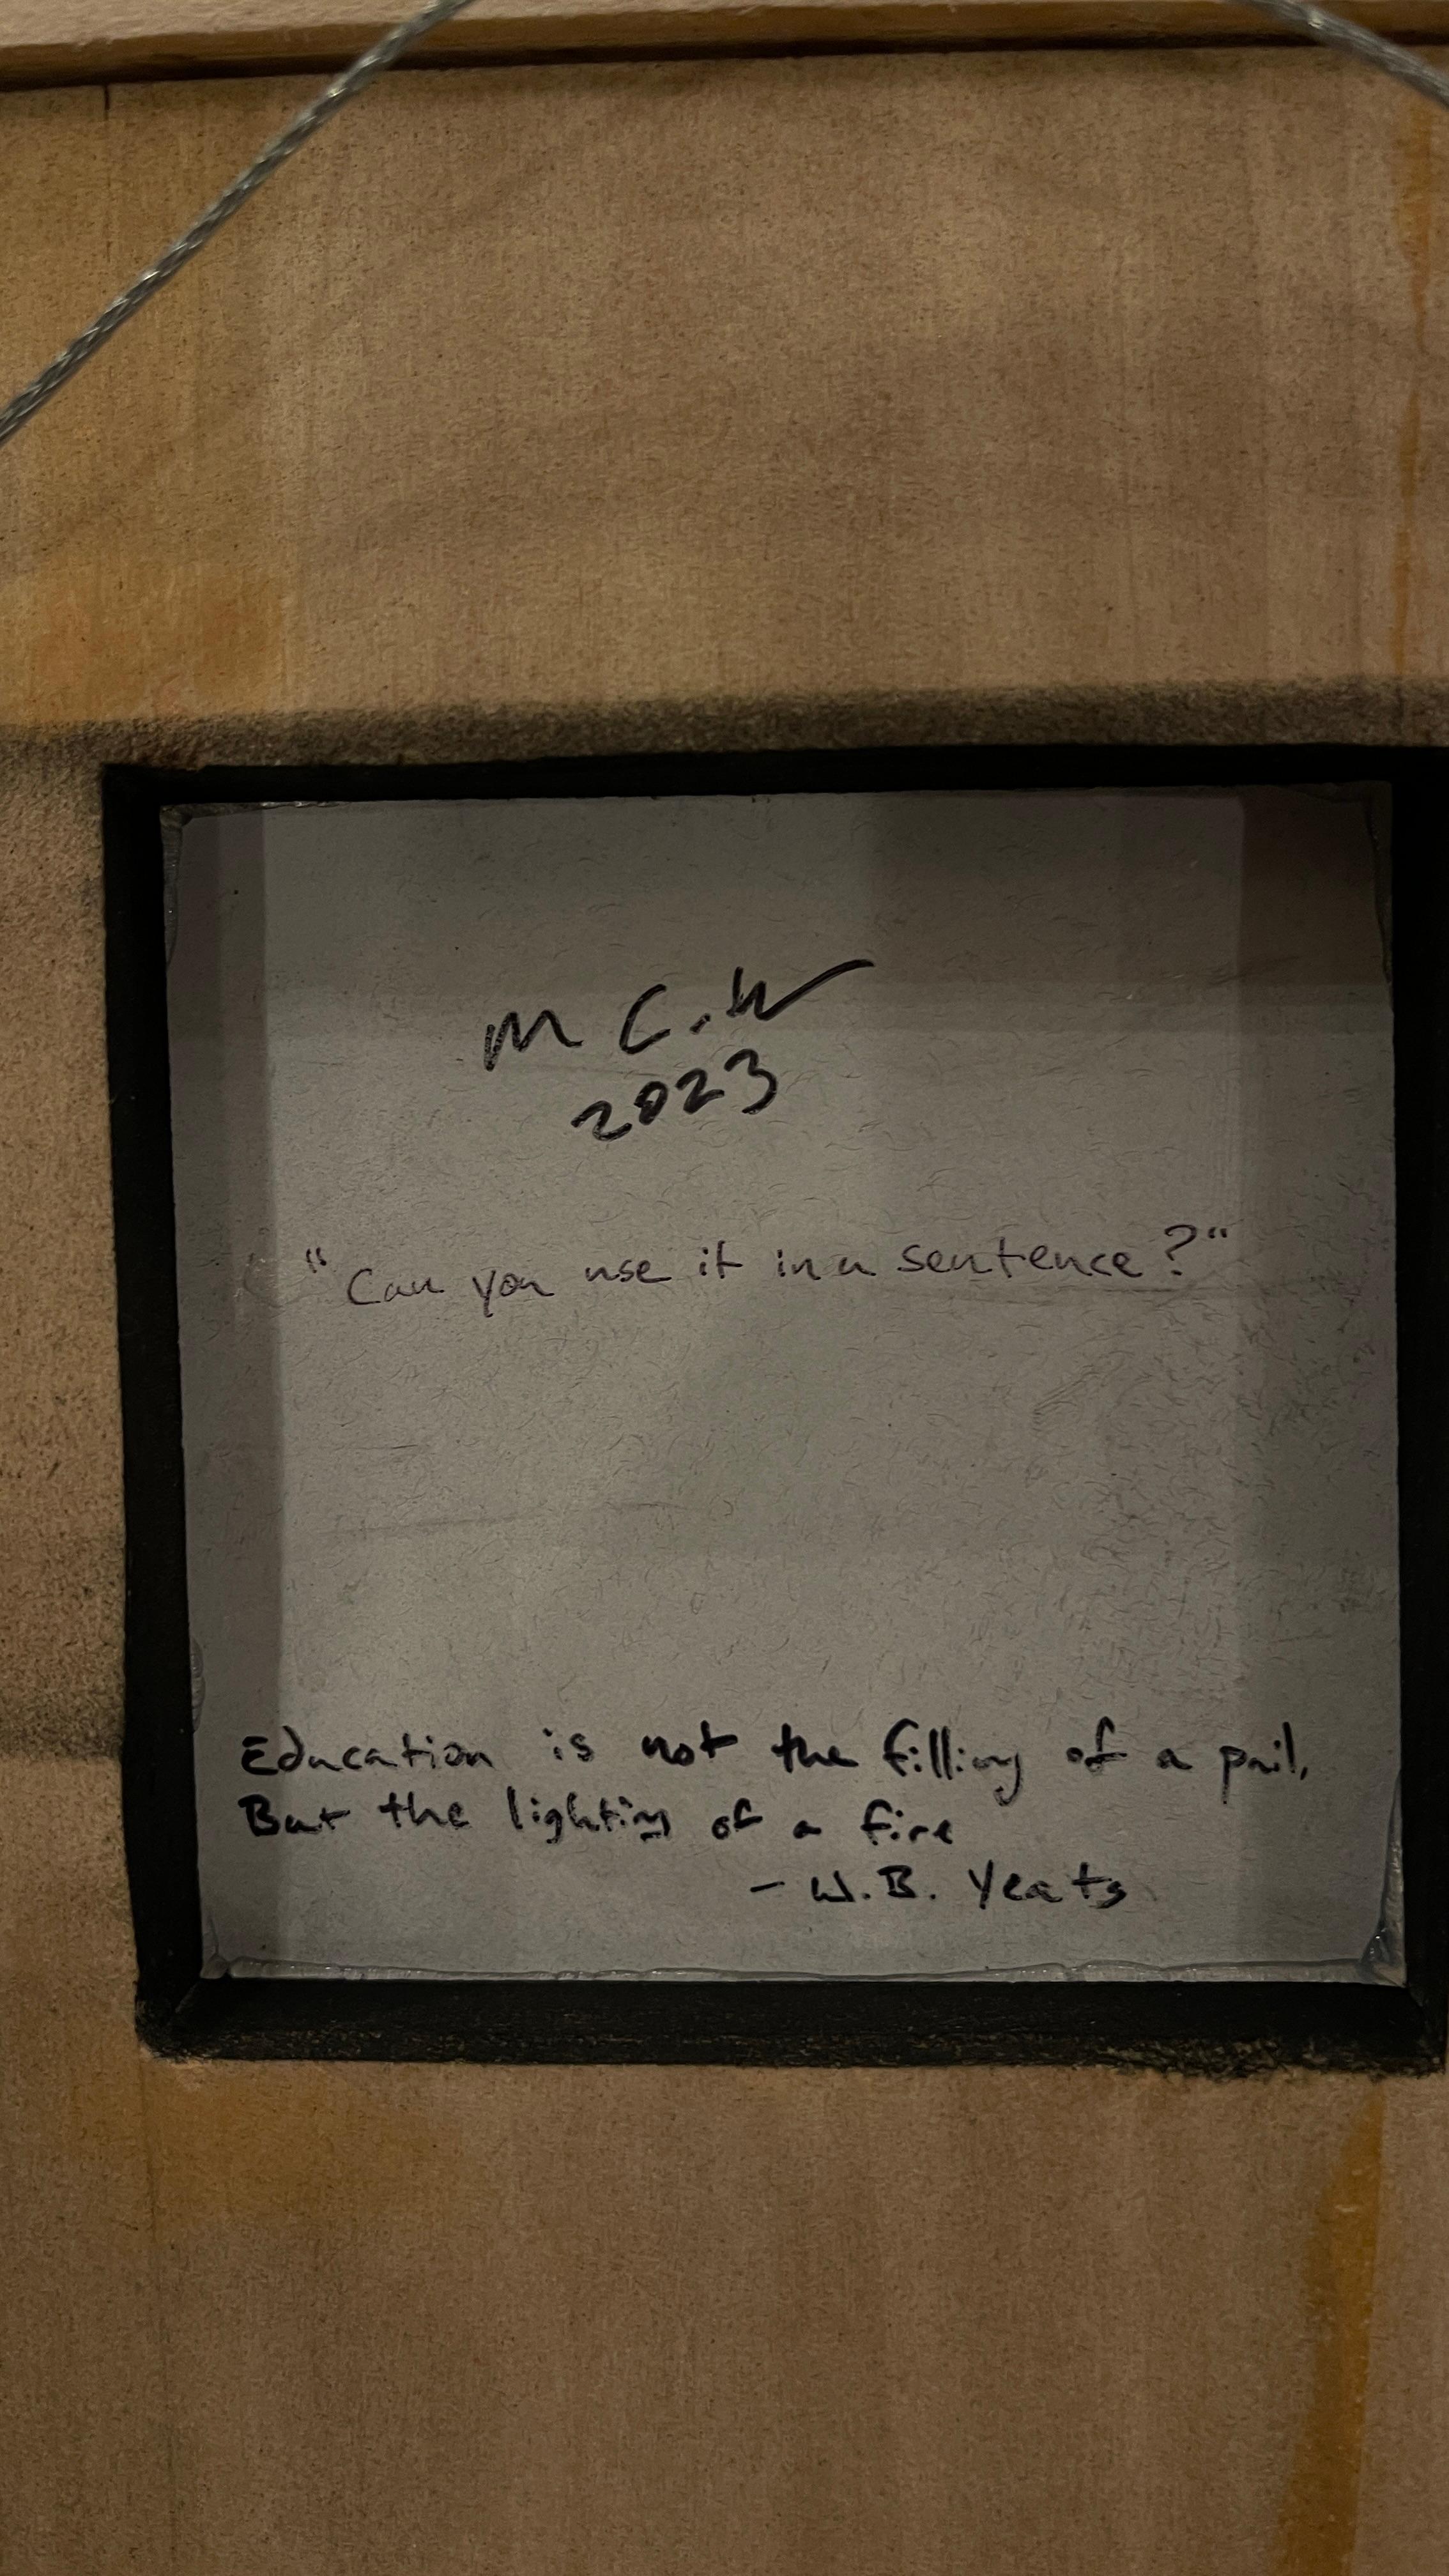 M C.W
2023
"Can you use it in a sentence?"
Education is not the filling of a pail,
But the lighting of a fire
- W.B. Yeats